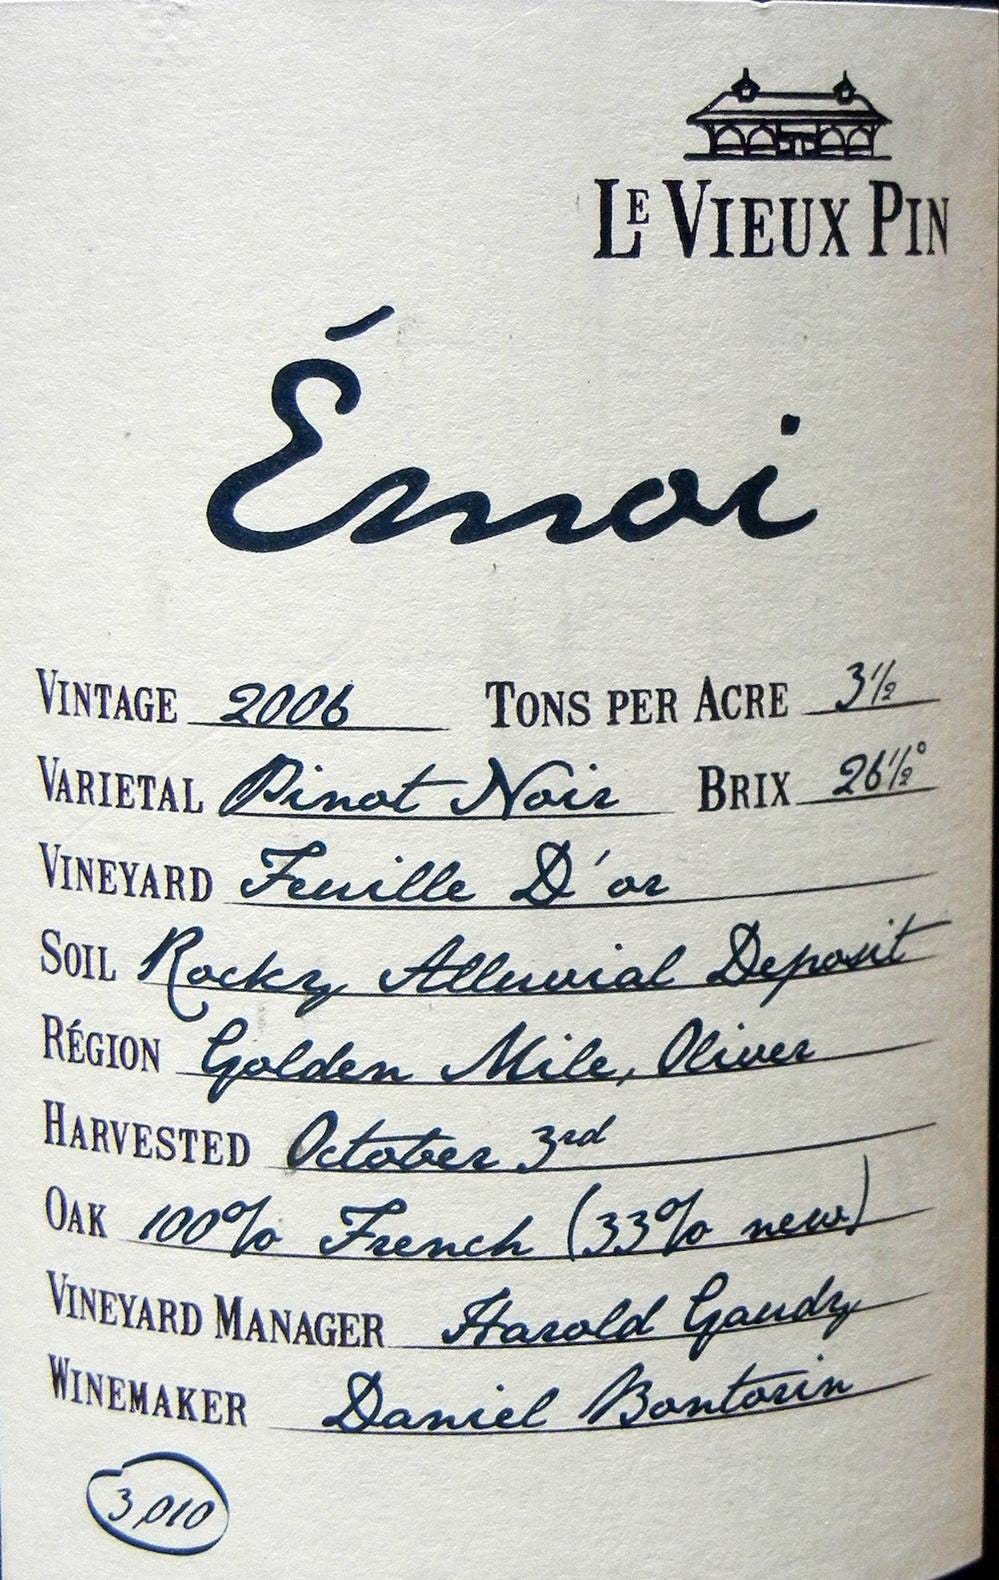 LE VIEUX PIN
Émoi
VINTAGE 2006 TONS PER ACRE 3½
VARIETAL Pinot Noir BRIX 26½°
VINEYARD Feuille D'or
SOIL Rocky Alluvial Deposit
RÉGION Golden Mile, Oliver
HARVESTED October 3rd
OAK 100% French (33% new)
VINEYARD MANAGER Harold Gaudy
WINEMAKER Daniel Bontorin
3,010